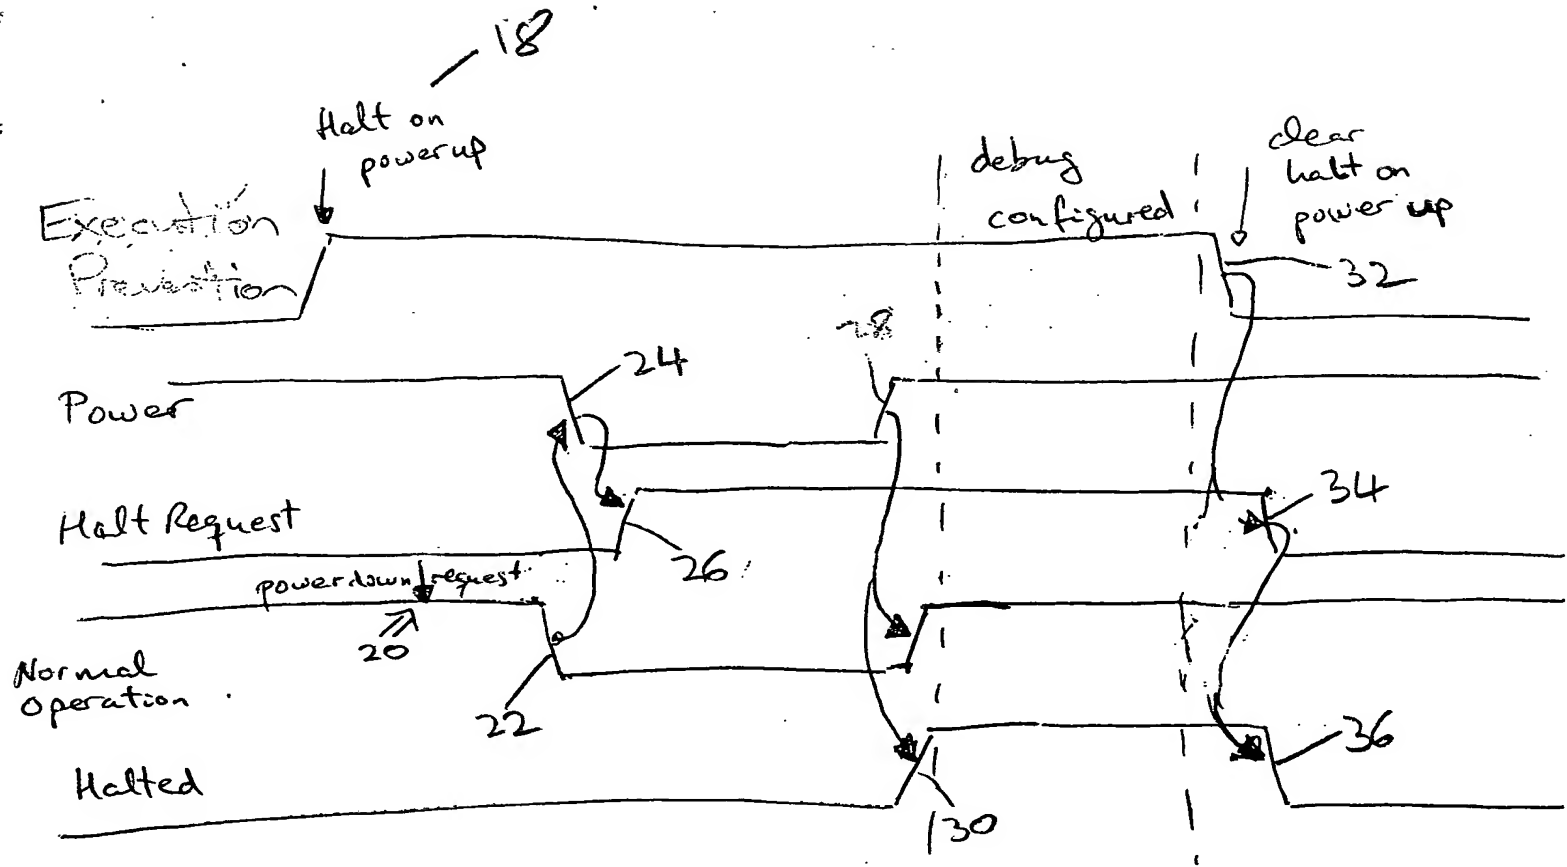 18
Halt on
powerup
debug
configured
clear
halt on
power up
Execution
Prevention
32
28
24
Power
34
Halt Request
26
powerdown request
20
Normal
Operation
22
36
Halted
130